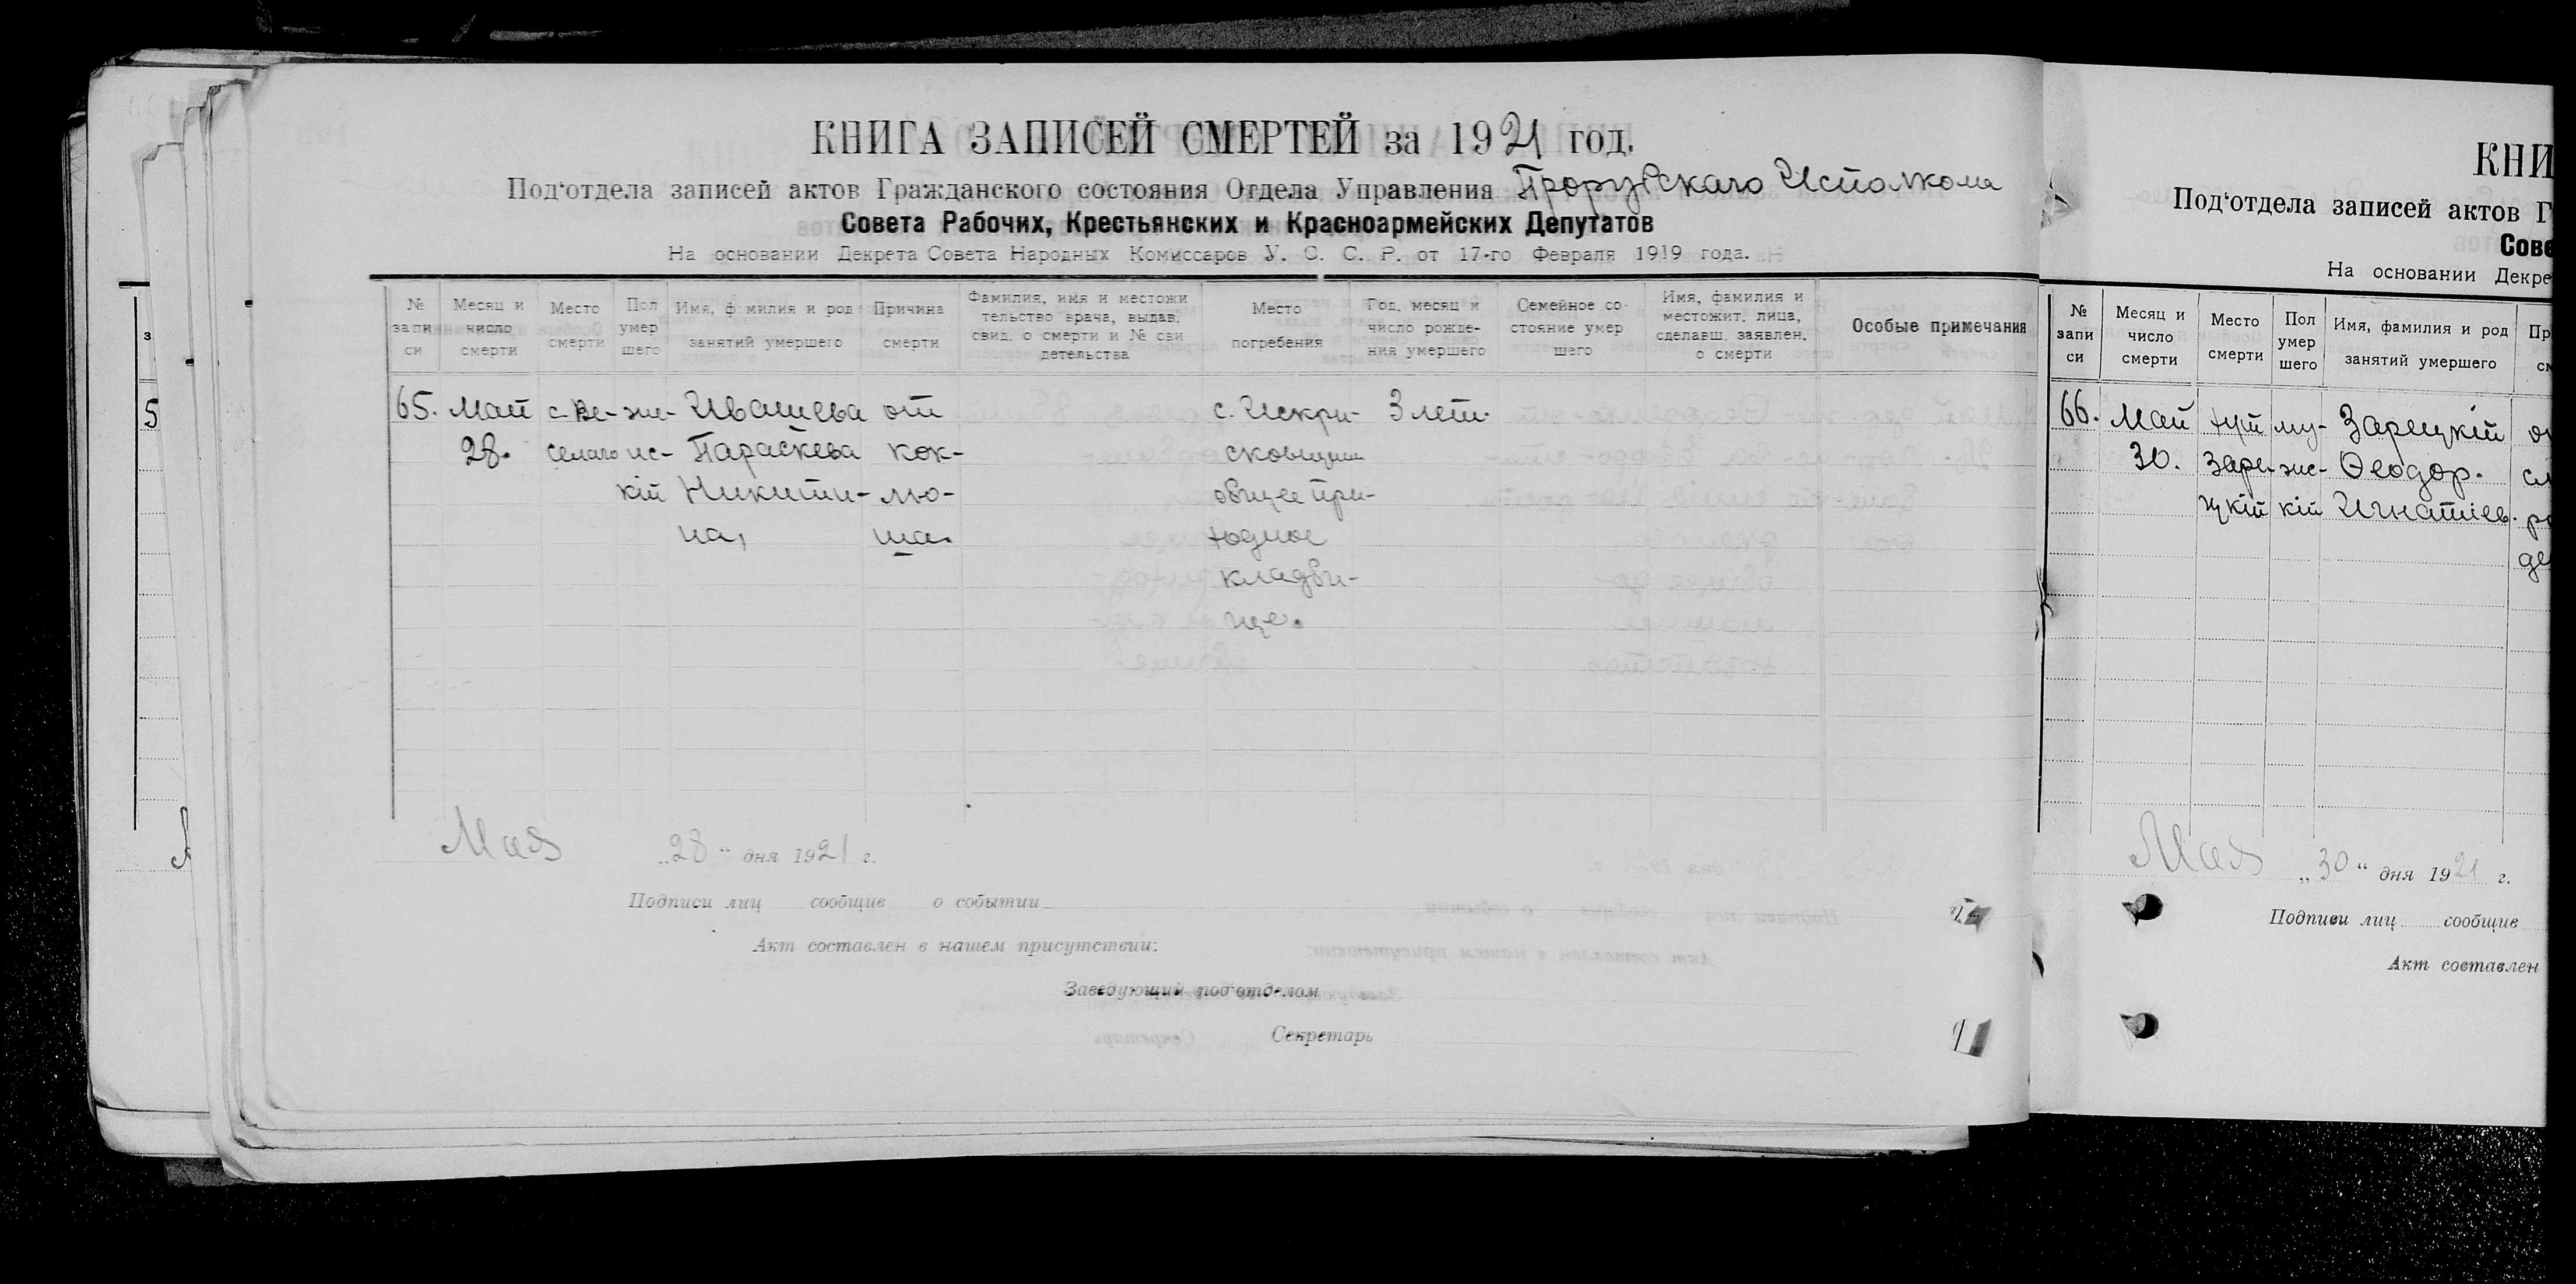 КНИГА ЗАПИСЕЙ СМЕРТЕЙ за 1921 год.
Под'отдела записей актов Гражданского состояния Отдела Управления Прорубскаго Исполкома
Совета Рабочих, Крестьянских и Красноармейских Депутатов
На основании Декрета Совета Народных Комиссаров У. С. С. Р. от 17-го Февраля 1919 года.
№ запи си
Месяц и число смерти
Место смерти
Пол умер шего
Имя, ф милия и род занятий умершего
Причина смерти
Фамилия, имя и местожи тельство врача, выдав. свид. о смерти и № сви детельства
Место погребения
Год, месяц и число рожде- ния умершего
Семейное со- стояние умер шего
Имя, фамилия и местожит. лица, сделавш. заявлен. о смерти
Особые примечания
65. Май с. Ве- жен- Ивашева от с. Искри- 3 лет.
28. селаго ис- Параскева кок- сковщини
кій Никити- лю- общее при-
на, ша. ходное
кладби-
ще.
Мая „28“ дня 1921 г.
Подписи лиц сообщив о событии
Акт составлен в нашем присутствии:
Заведующий под'отделом
Секретарь
КНИ
Под'отдела записей актов Г
Сове
На основании Декре
№ запи си
Месяц и число смерти
Место смерти
Пол умер шего
Имя, фамилия и род занятий умершего
Пр
см
66. Май хут му- Зарецкій
30. Заре- жс- Ѳеодор.
цкій кій Игнатіев.
Мая „30“ дня 1921 г.
Подписи лиц сообщив
Акт составлен
з
5